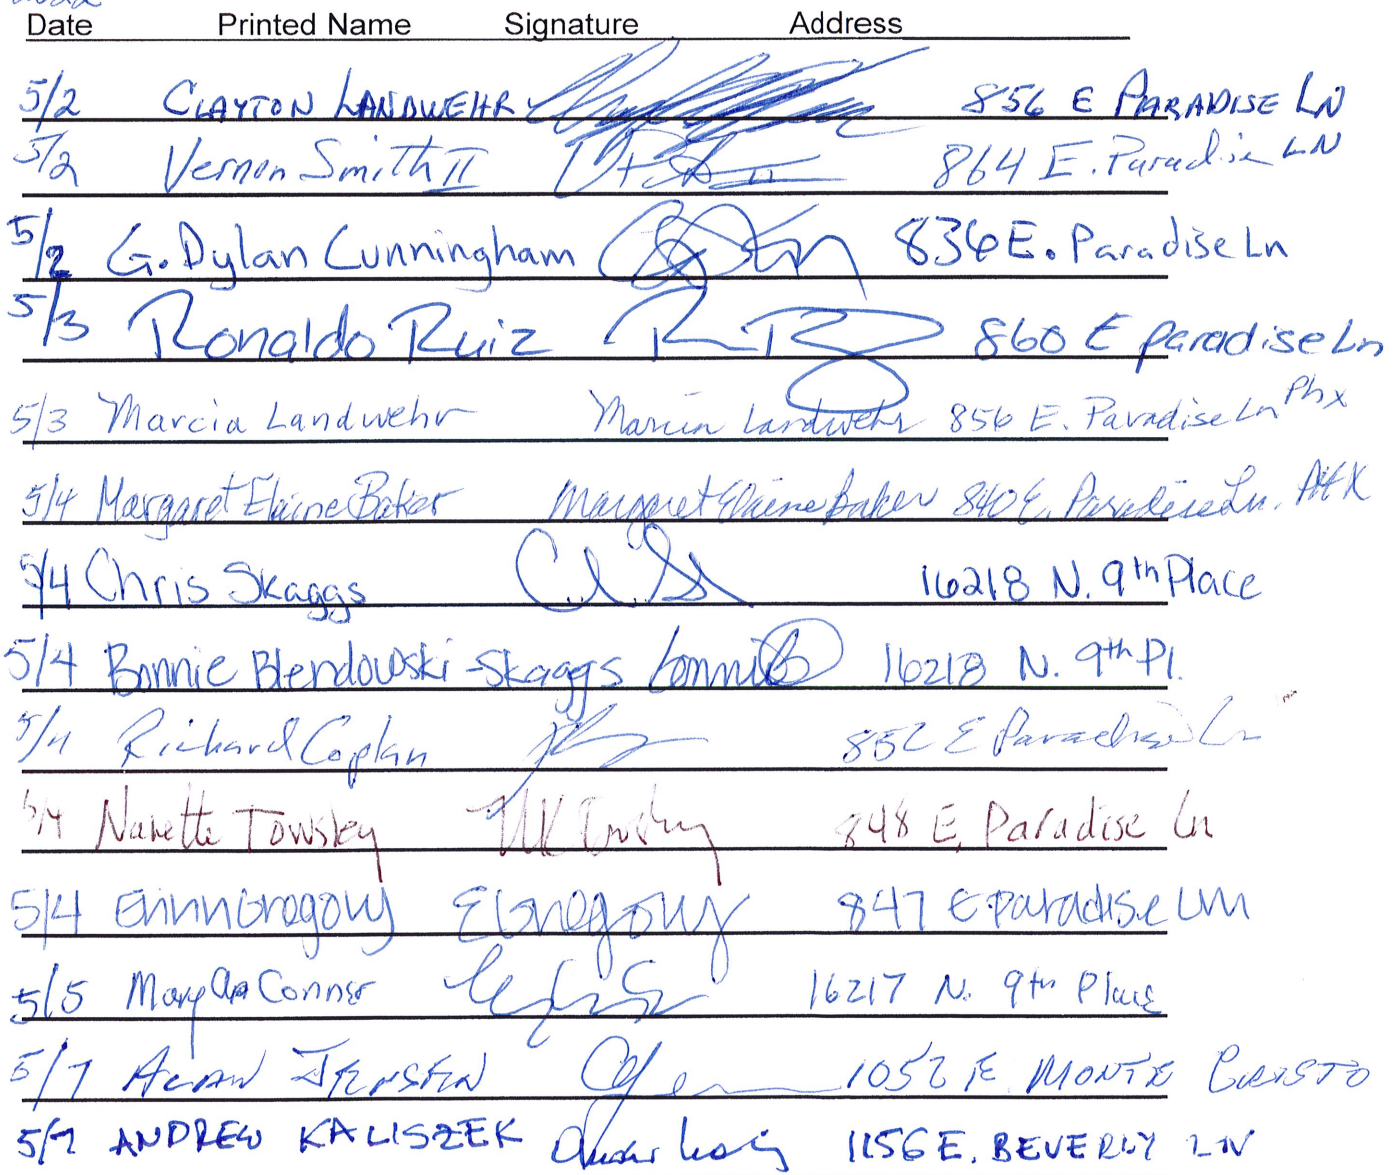 Date Printed Name Signature Address
5/2 CLAYTON LANDWEHR 856 E PARADISE LN
5/2 Vernon Smith II 864 E. Paradise LN
5/2 G. Dylan Cunningham 836 E. Paradise Ln
5/3 Ronaldo Ruiz 860 E paradise Ln
5/3 Marcia Landwehr Marcia Landwehr 856 E. Paradise Ln Phx
5/4 Margaret Elaine Baker Margaret Elaine Baker 840 E. Paradise Ln. PHX
5/4 Chris Skaggs 16218 N. 9th Place
5/4 Bonnie Blendowski-Skaggs 16218 N. 9th Pl.
5/4 Richard Coplan 852 E Paradise Ln
5/4 Nanette Towsley 848 E. Paradise Ln
5/4 Erinn Gregory E Gregory 847 E paradise LN
5/5 Mary Ann Conner 16217 N. 9th Place
5/7 ALAN JENSEN 1052 E. MONTE CRISTO
5/7 ANDREW KALISZEK 1156 E. BEVERLY LN